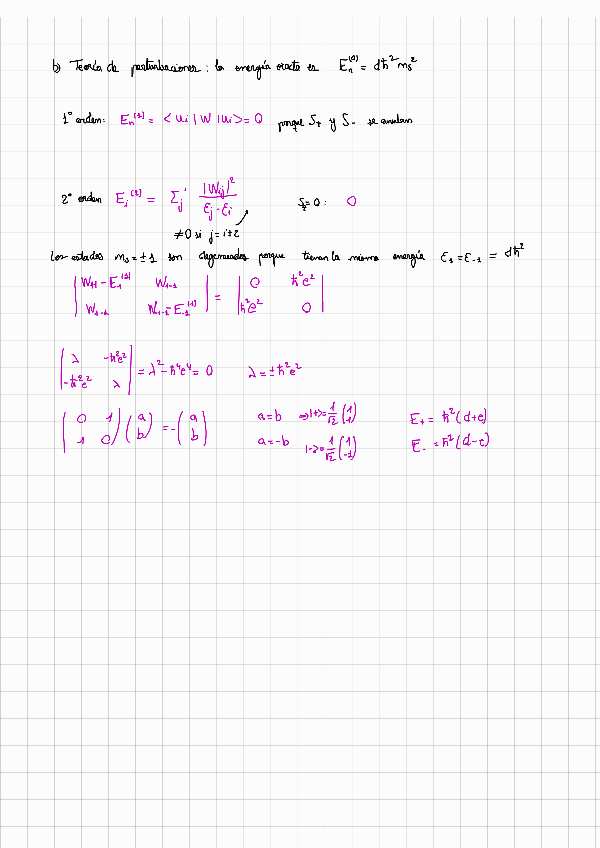 b) Teoría de perturbaciones: la energía exacta es E_n^(0) = dħ² m_s²
1° orden: E_n^(1) = <u_i | W | u_i> = 0 porque S_+ y S_- se anulan
2° orden E_i^(2) = Σ_j' |W_ij|² / (ε_j - ε_i) S_z=0: 0
≠0 si j=i±2
Los estados m_s=±1 son degenerados porque tienen la misma energía ε_1=ε_-1 = dħ²
| W_11 - E_1^(1) W_1-1 | = | 0 ħ²e² |
| W_1-1 W_-1-1 - E_-1^(1) | | ħ²e² 0 |
| λ -ħ²e² | = λ² - ħ⁴e⁴ = 0 λ = ±ħ²e²
| -ħ²e² λ |
( 0 1 ) ( a ) = - ( a ) a=b ⇒ |+> = 1/√2 ( 1 1 ) E_+ = ħ²(d+e)
( 1 0 ) ( b ) ( b ) a=-b |-> = 1/√2 ( 1 -1 ) E_- = ħ²(d-e)